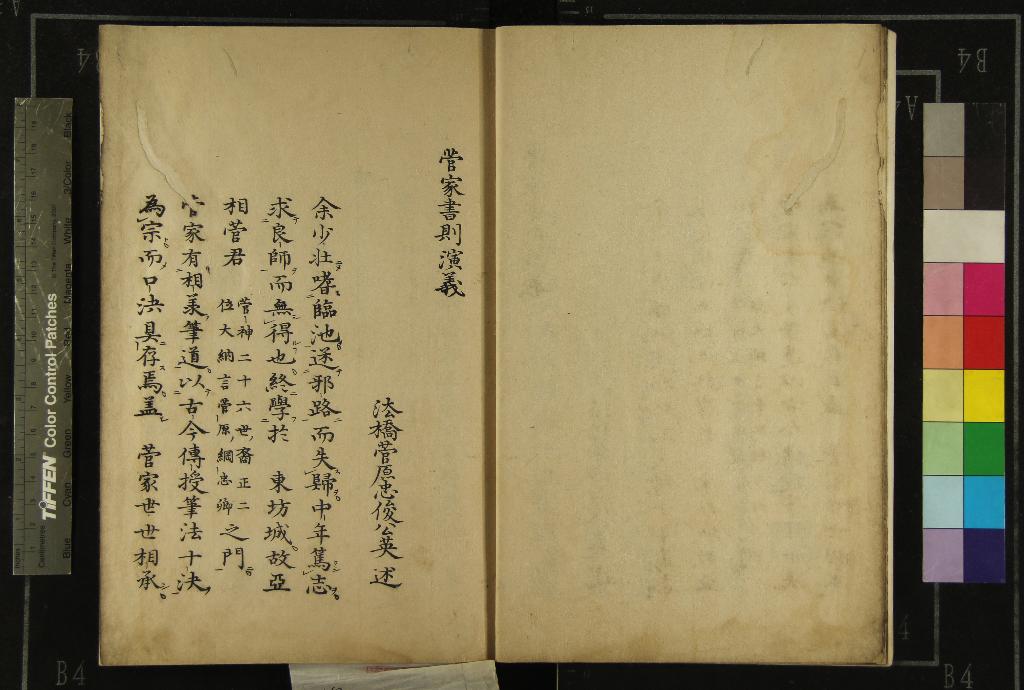 菅家書則演義
法橋菅原忠俊公英述
余少壯嗜臨池迷邪路而失歸中年篤志
求良師而無得也終學於 東坊城故亞
相菅君
菅神二十六世裔正二
位大納言菅原綱忠卿
之門
菅家有相羕筆道以古今傳授筆法十決
為宗而口決具存焉蓋 菅家世世相承
TIFFEN Color Control Patches
Blue Cyan Green Yellow Red Magenta White 3/Color Black
Centimetres
Inches
B4
B4
A4
B4
B4